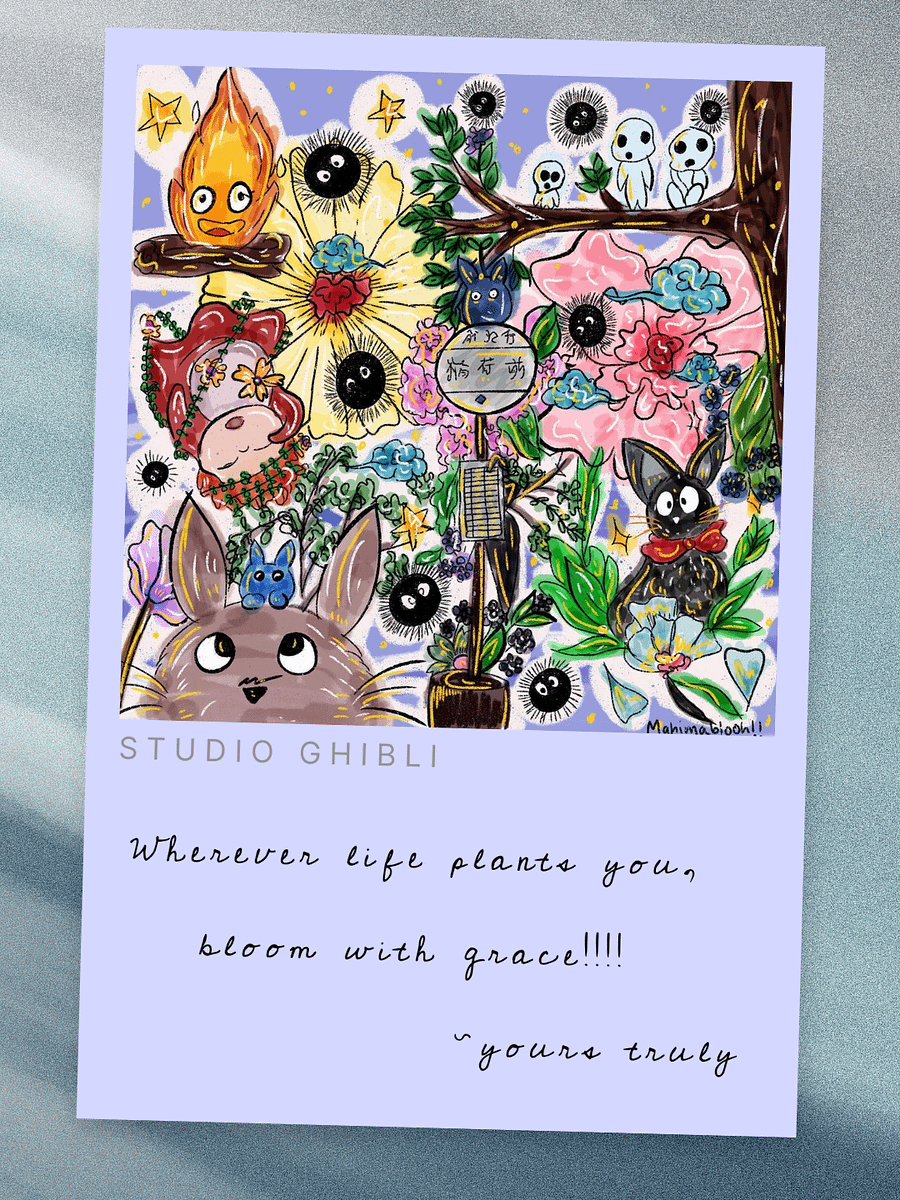 Mahimabiooh!!
STUDIO GHIBLI
Wherever life plants you,
bloom with grace!!!!
~yours truly